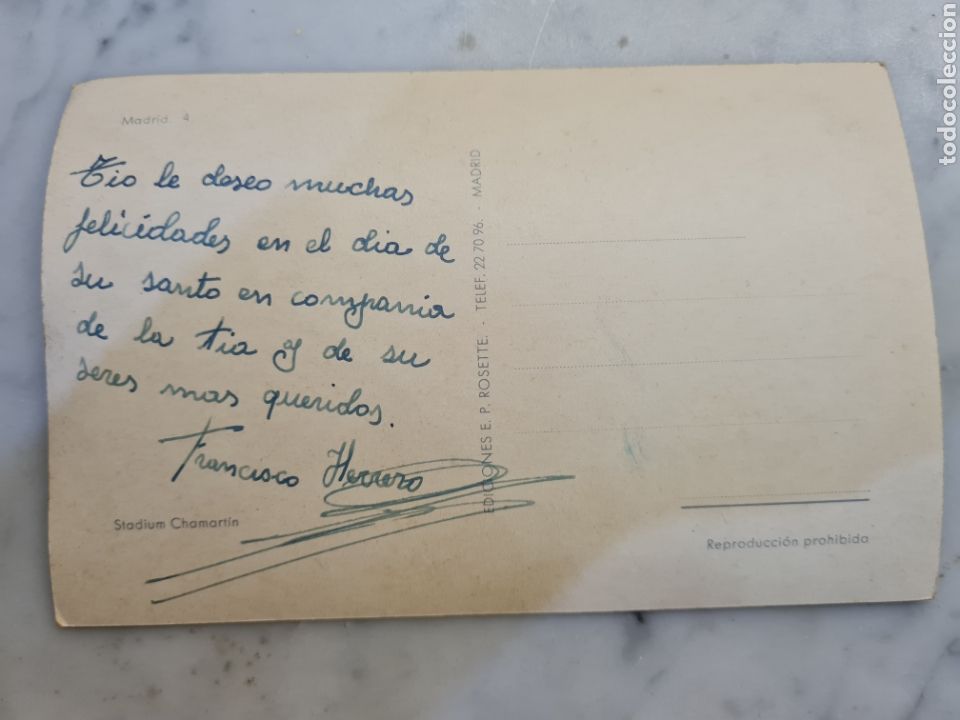 Madrid. 4
Tio le deseo muchas
felicidades en el dia de
su santo en compania
de la tia y de su
seres mas queridos.
Francisco Herrero
Stadium Chamartín
EDICIONES E. P. ROSETTE. - TELEF. 22 70 96. - MADRID
Reproducción prohibida
todocoleccion